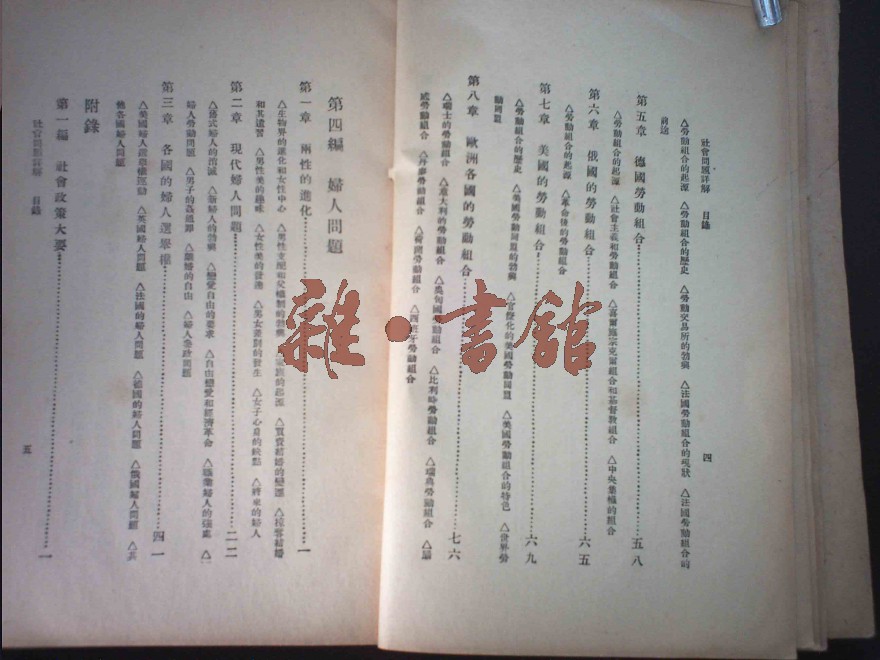 社會問題詳解 目錄
四
△勞動組合的起源 △勞動組合的歷史 △勞動交易所的勃興 △法國勞動組合的現狀 △法國勞動組合的
前途
第五章 德國勞動組合 五八
△勞動組合的起源 △社會主義和勞動組合 △喜爾施宗克爾組合和基督教組合 △中央業機的組合
第六章 俄國的勞動組合 六五
△勞動組合的起源 △革命後的勞動組合
第七章 美國的勞動組合 六九
△勞動組合的歷史 △美國勞動同盟的勃興 △官僚化的美國勞動同盟 △美國勞動組合的特色 △世界勞
動同盟
第八章 歐洲各國的勞動組合 七六
△瑞士的勞動組合 △意大利的勞動組合 △奧匈國勞動組合 △比利時勞動組合 △瑞典勞動組合 △挪
威勞動組合 △丹麥勞動組合 △荷蘭勞動組合 △西班牙勞動組合
第四編 婦人問題
第一章 兩性的進化 一
△生物界的進化和女性中心 △男性支配和父權制的勃興 家族的起源 △買賣結婚的變遷 △掠奪結婚
和其遺習 △男性美的趣味 △女性美的發達 △男女差別的發生 △女子心身的缺點 △將來的婦人
第二章 現代婦人問題 二二
△舊式婦人的消滅 △新婦人的勃興 △戀愛自由的要求 △自由戀愛和經濟革命 △職業婦人的強處
婦人勞動問題 △男子的 △離婚的自由 △婦人參政問題
第三章 各國的婦人選舉權 四一
△美國婦人選舉權運動 △英國婦人問題 △法國的婦人問題 △德國的婦人問題 △俄國婦人問題 △其
他各國婦人問題
附錄
第一編 社會政策大要 一
社會問題詳解 目錄
五
雜·書館